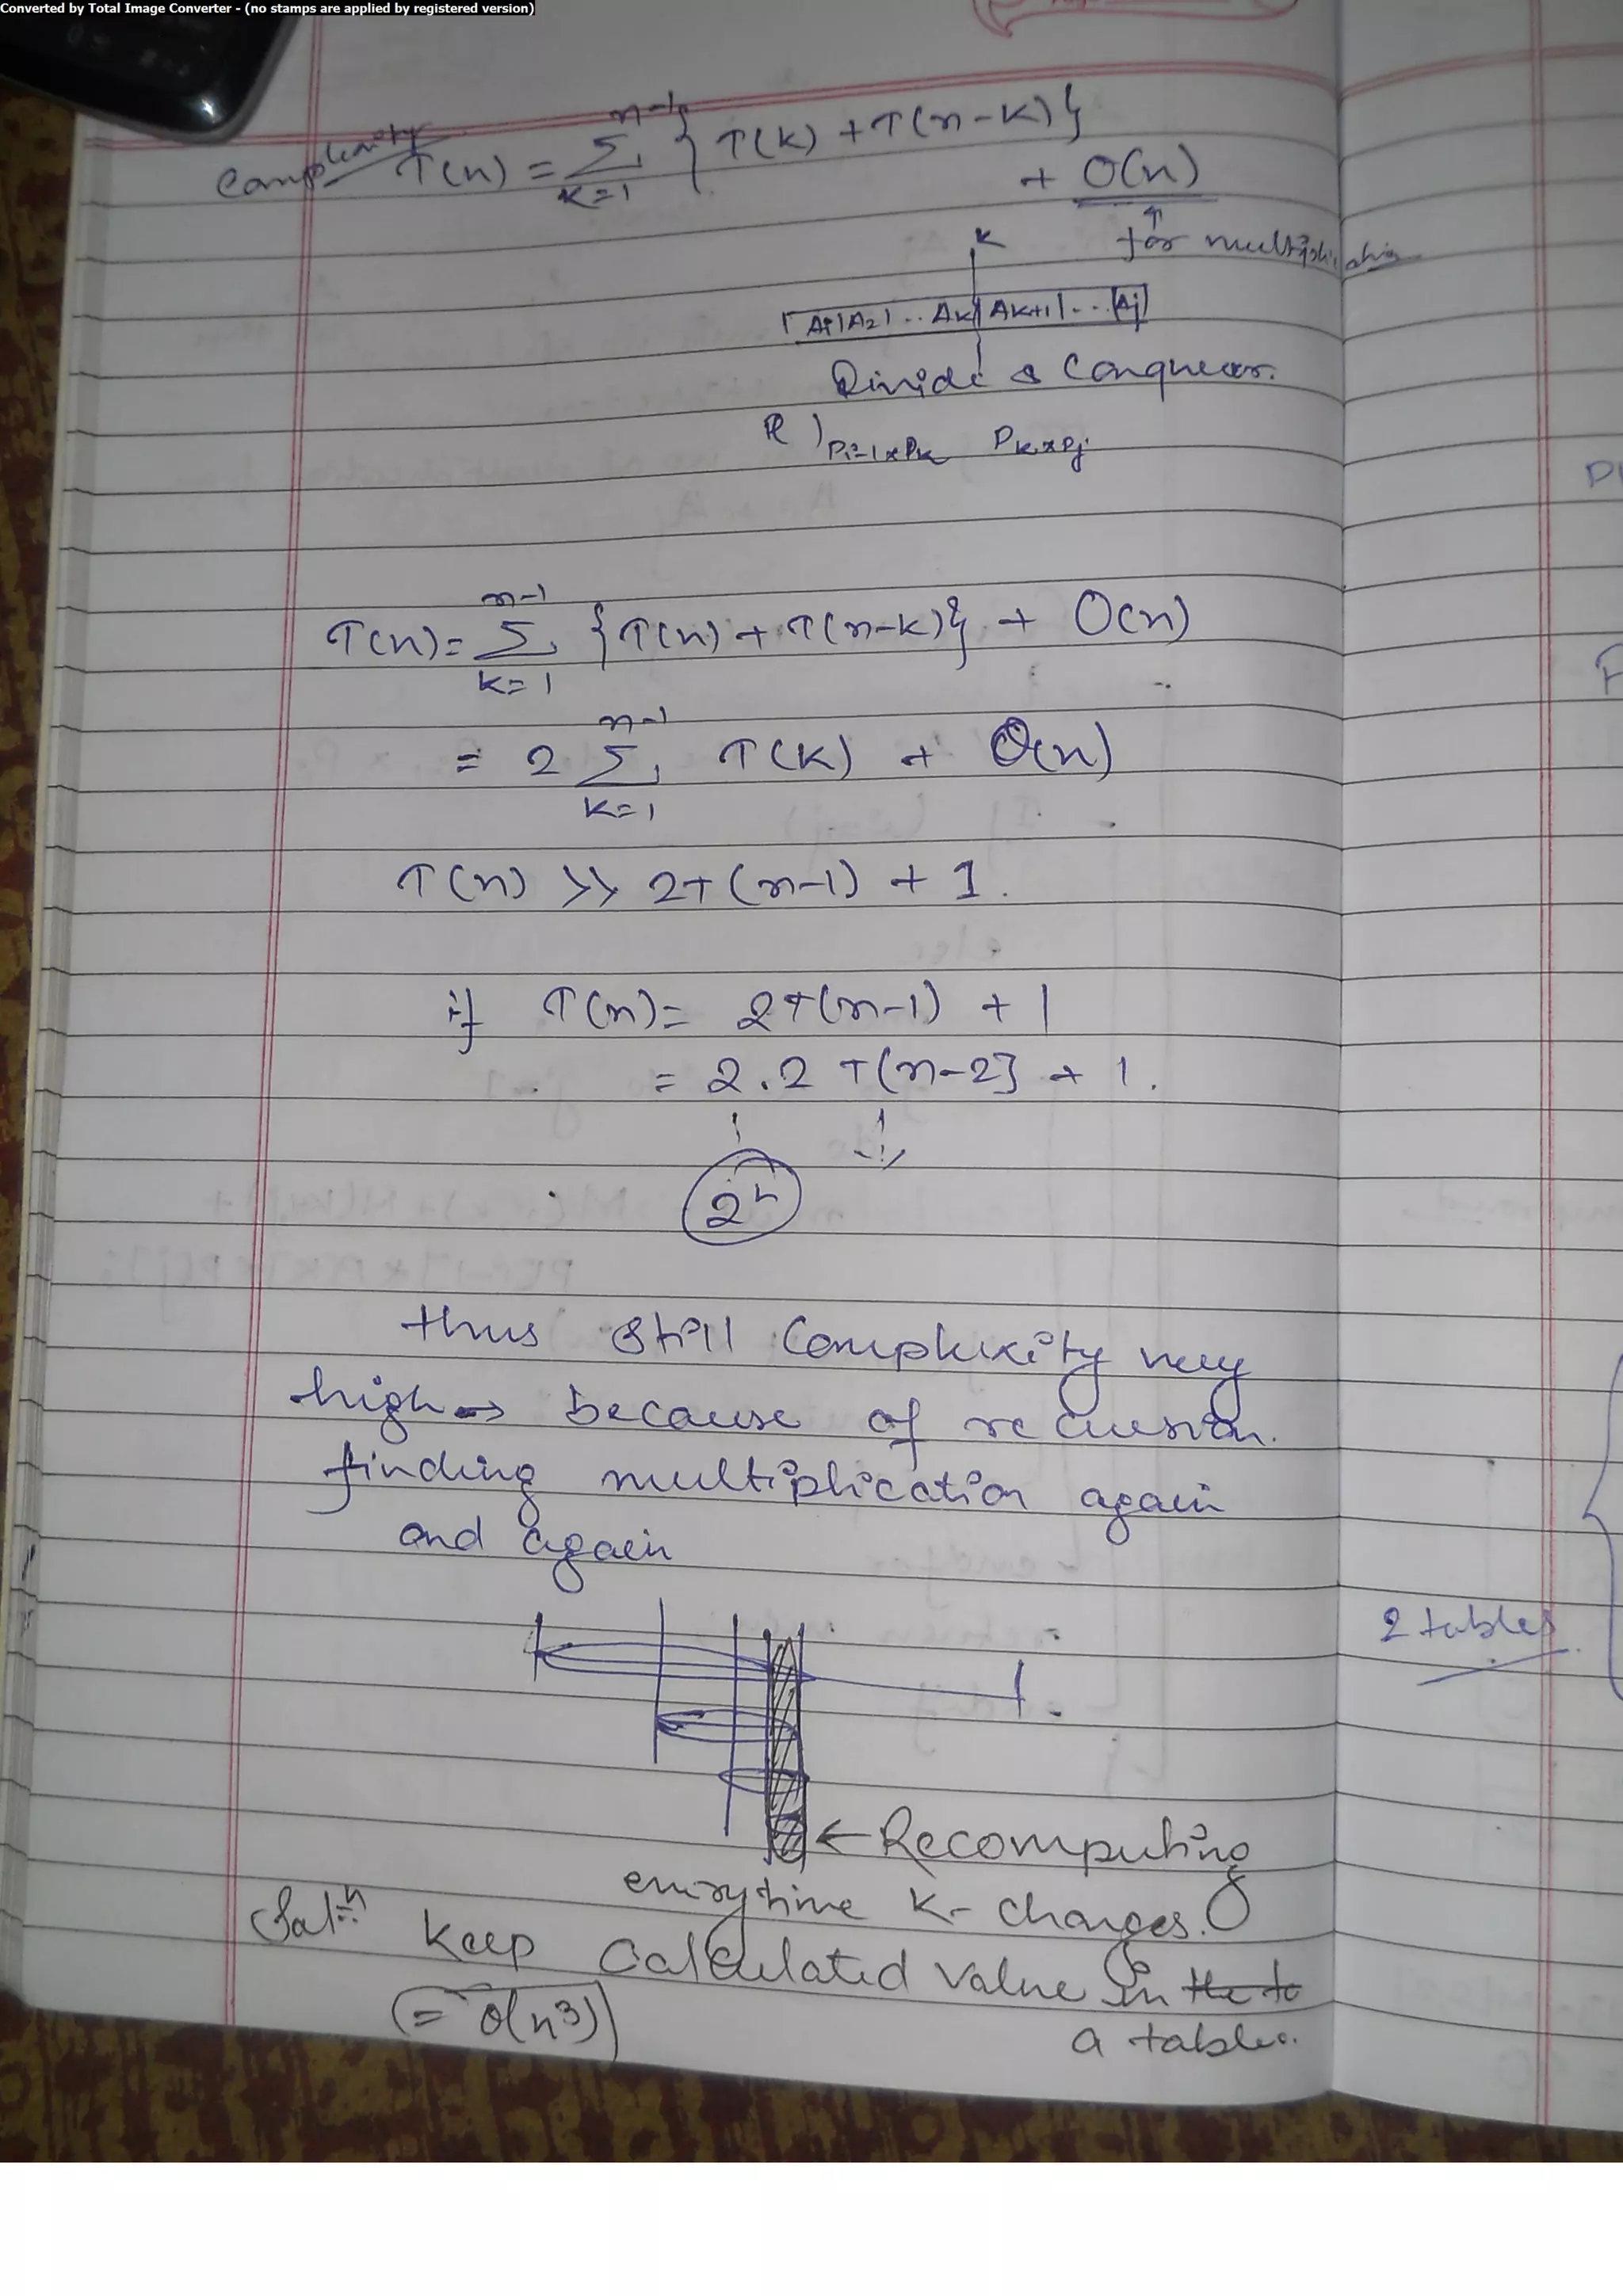 Converted by Total Image Converter - (no stamps are applied by registered version)
Complexity T(n) = n-1 Σ k=1 { T(k) + T(n-k) }
+ O(n)
↑
for multiplication
K
A1 | A2 | .. AK | AK+1 | ... | Aj
Divide & Conquear.
Pi-1 x Pk Pk x Pj
T(n) = n-1 Σ k=1 { T(n) + T(n-k) } + O(n)
= 2 n-1 Σ k=1 T(k) + O(n)
T(n) >> 2T(n-1) + 1.
if T(n) = 2T(n-1) + 1
= 2.2 T(n-2] + 1.
2^n
thus still complexity very
high → because of recursion.
finding multiplication again
and again
2 tables
← Recomputing
everytime K- changes.
Sol^n Keep Calculated value in the to
a table.
(= O(n^3))